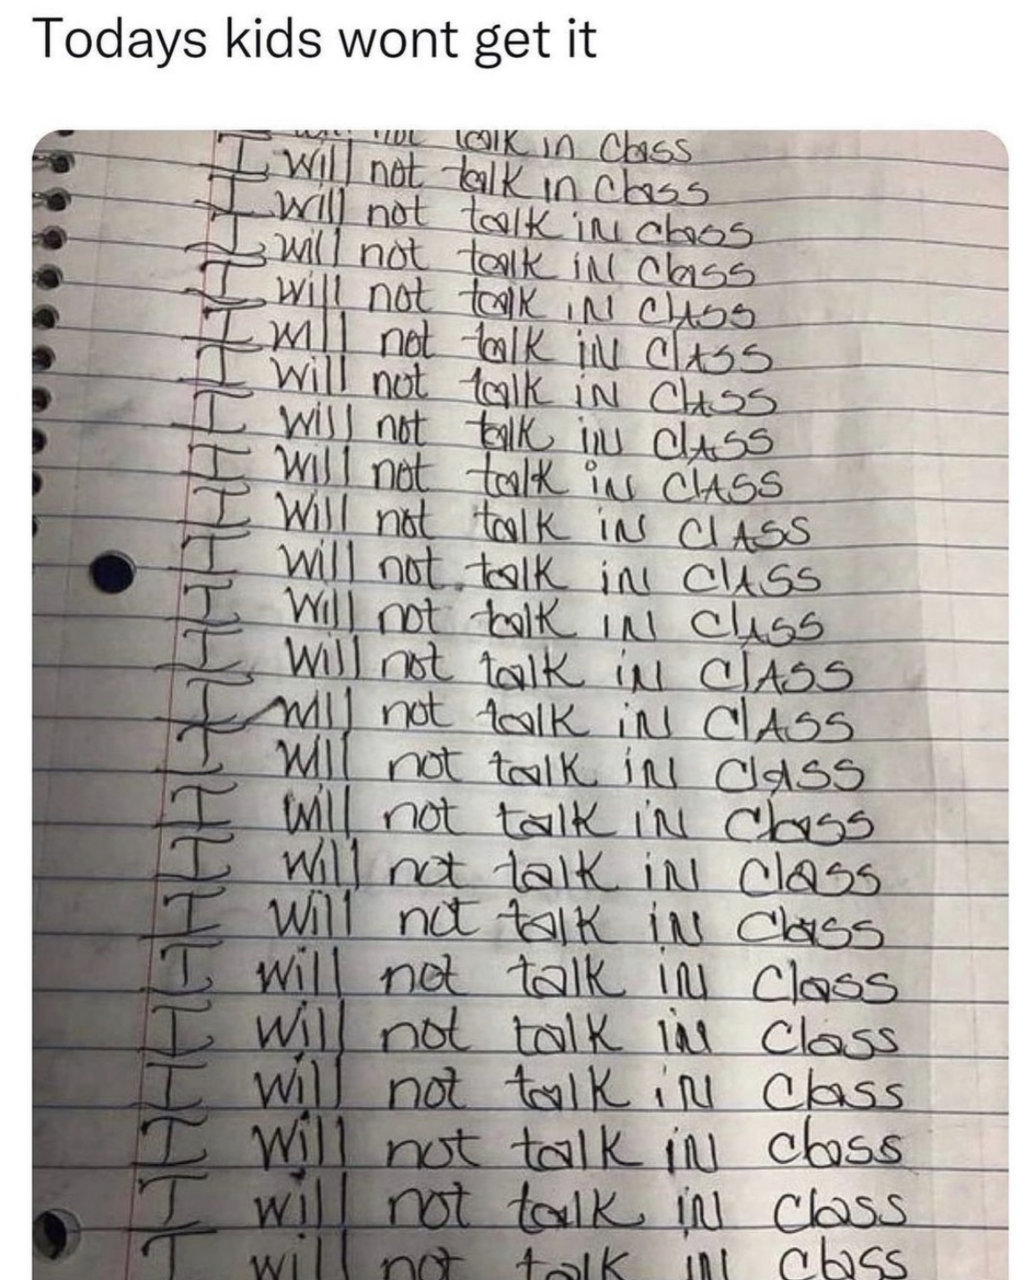 Todays kids wont get it
will not talk in Class
I will not talk in Class
I will not talk iN class
I will not talk iN Class
I will not talk iN ClAss
I will not talk iN ClAss
I will not talk iN ClAss
I will not talk iN ClAss
I will not talk iN ClASS
I Will not talk iN ClASS
I will not talk iN ClASS
I Will not talk IN ClASS
I Will not talk iN ClASS
I will not talk iN ClASS
I Will not talk iN ClASS
I Will not talk iN Class
I Will not talk iN Class
I Will not talk iN Class
I Will not talk iN Class
I Will not talk iN Class
I Will not talk iN Class
I Will not talk iN class
I will not talk iN Class
I will not talk iN Class